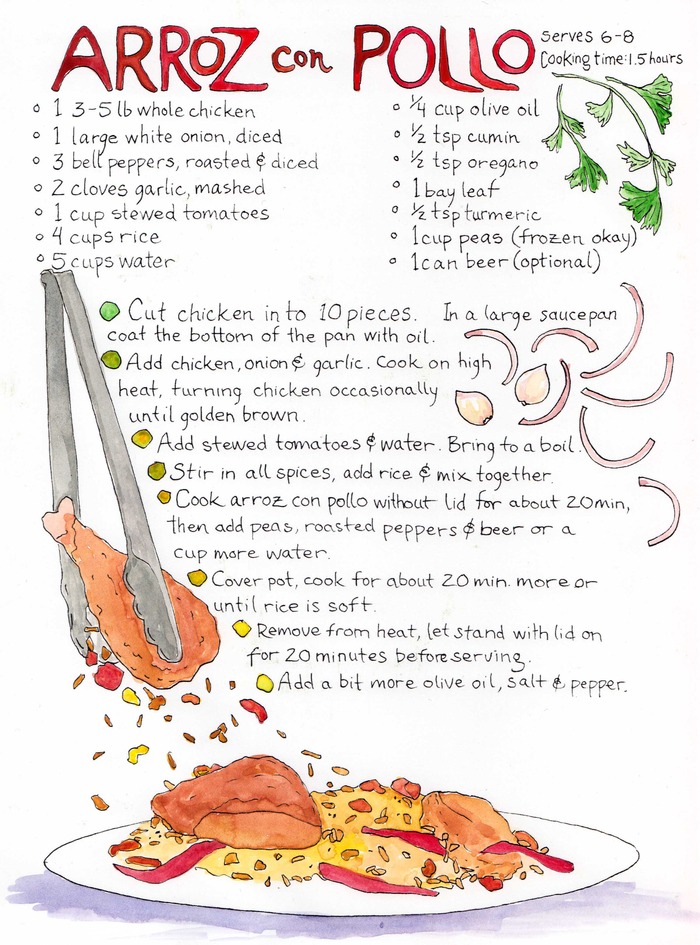 ARROZ con POLLO
Serves 6-8
Cooking time: 1.5 hours
1 3-5 lb whole chicken
1 large white onion, diced
3 bell peppers, roasted & diced
2 cloves garlic, mashed
1 cup stewed tomatoes
4 cups rice
5 cups water
1/4 cup olive oil
1/2 tsp cumin
1/2 tsp oregano
1 bay leaf
1/2 tsp turmeric
1 cup peas (frozen okay)
1 can beer (optional)
Cut chicken in to 10 pieces. In a large saucepan
coat the bottom of the pan with oil.
Add chicken, onion & garlic. Cook on high
heat, turning chicken occasionally
until golden brown.
Add stewed tomatoes & water. Bring to a boil.
Stir in all spices, add rice & mix together.
Cook arroz con pollo without lid for about 20 min,
then add peas, roasted peppers & beer or a
cup more water.
Cover pot, cook for about 20 min. more or
until rice is soft.
Remove from heat, let stand with lid on
for 20 minutes before serving.
Add a bit more olive oil, salt & pepper.